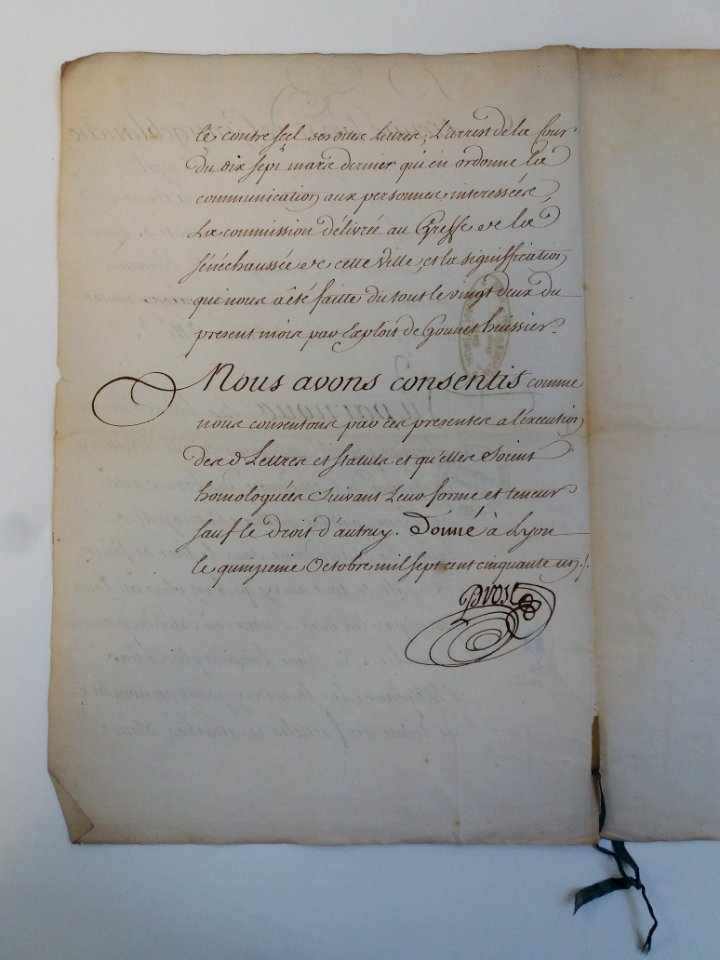 le contre scel des dittes Lettres, L'arrest de la Cour
du dix sept mars dernier qui en ordonne la
communication aux personnes interessées,
La commission délivrée au Greffe de la
sénéchaussée de cette ville, et la signiffication
qui nous a été faitte du tout le vingt deux du
present mois par Exploit de Gounet huissier.
Nous avons consentis comme
nous consentons par ces presentes a l'éxecution
des d. Lettres et statuts et qu'elles soient
homologuées suivant Leur forme et teneur
sauf le droit d'autruy. Donné à Lyon
le quinzieme Octobre mil sept cent cinquante un ./.
Prost